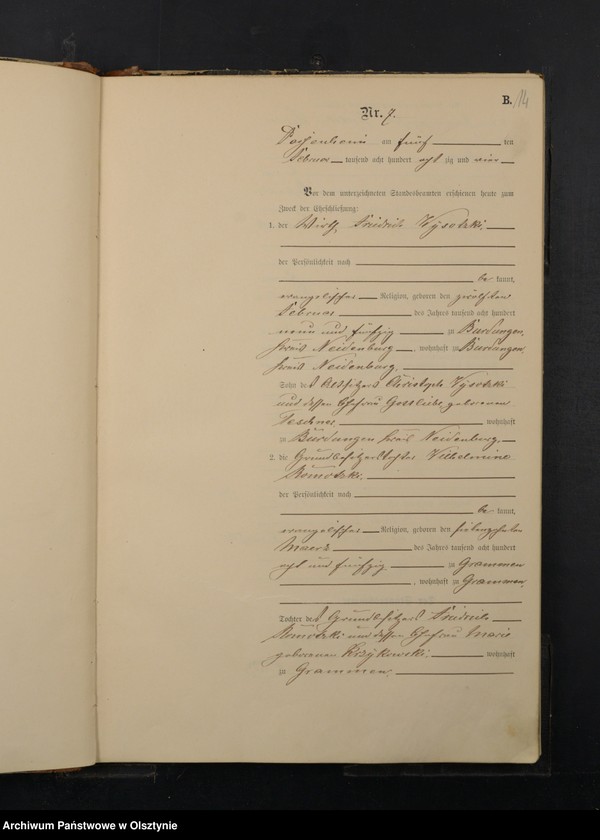 B. 14
Nr. 7.
am fünf ten
Februar tausend acht hundert acht zig und vier
Vor dem unterzeichneten Standesbeamten erschienen heute zum
Zweck der Eheschließung:
1. der Wirth Friedrich Wysotzki.
der Persönlichkeit nach
be kannt,
evangelischer Religion, geboren den zwölften
Februar des Jahres tausend acht hundert
neun und fünfzig zu Burdungen,
Kreis Neidenburg, wohnhaft zu Burdungen,
Kreis Neidenburg.
Sohn des Besitzers Christoph Wysotzki
und dessen Ehefrau Gottliebe geborenen
wohnhaft
zu Burdungen Kreis Neidenburg.
2. die Grundbesitzerstochter Wilhelmine
der Persönlichkeit nach
be kannt,
evangelischer Religion, geboren den siebenzehnten
Maerz des Jahres tausend acht hundert
acht und fünfzig zu Grammen
, wohnhaft zu Grammen,
Tochter des Grundbesitzers Friedrich
und dessen Ehefrau Marie
geborenen Krzykowski. wohnhaft
zu Grammen.
Archiwum Państwowe w Olsztynie